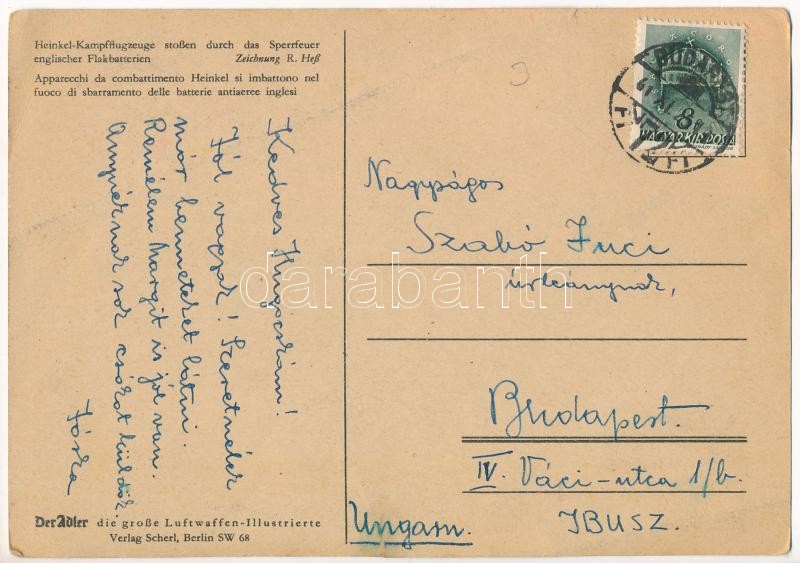 Heinkel-Kampfflugzeuge stoßen durch das Sperrfeuer
englischer Flakbatterien Zeichnung R. Heß
Apparecchi da combattimento Heinkel si imbattono nel
fuoco di sbarramento delle batterie antiaeree inglesi
Kedves Hugocskám!
Jól vagyok! Szeretnélek
már benneteket látni.
Remélem Margit is jól van.
Anyuéknak sok csókot küldök.
Jóska
Der Adler die große Luftwaffen-Illustrierte
Verlag Scherl, Berlin SW 68
BUDAPEST
8
MAGYAR KIR. POSTA
Nagyságos
Szabó Juci
úrleánynak,
Budapest.
IV. Váci-utca 1/b.
IBUSZ.
Ungarn.
darabanth